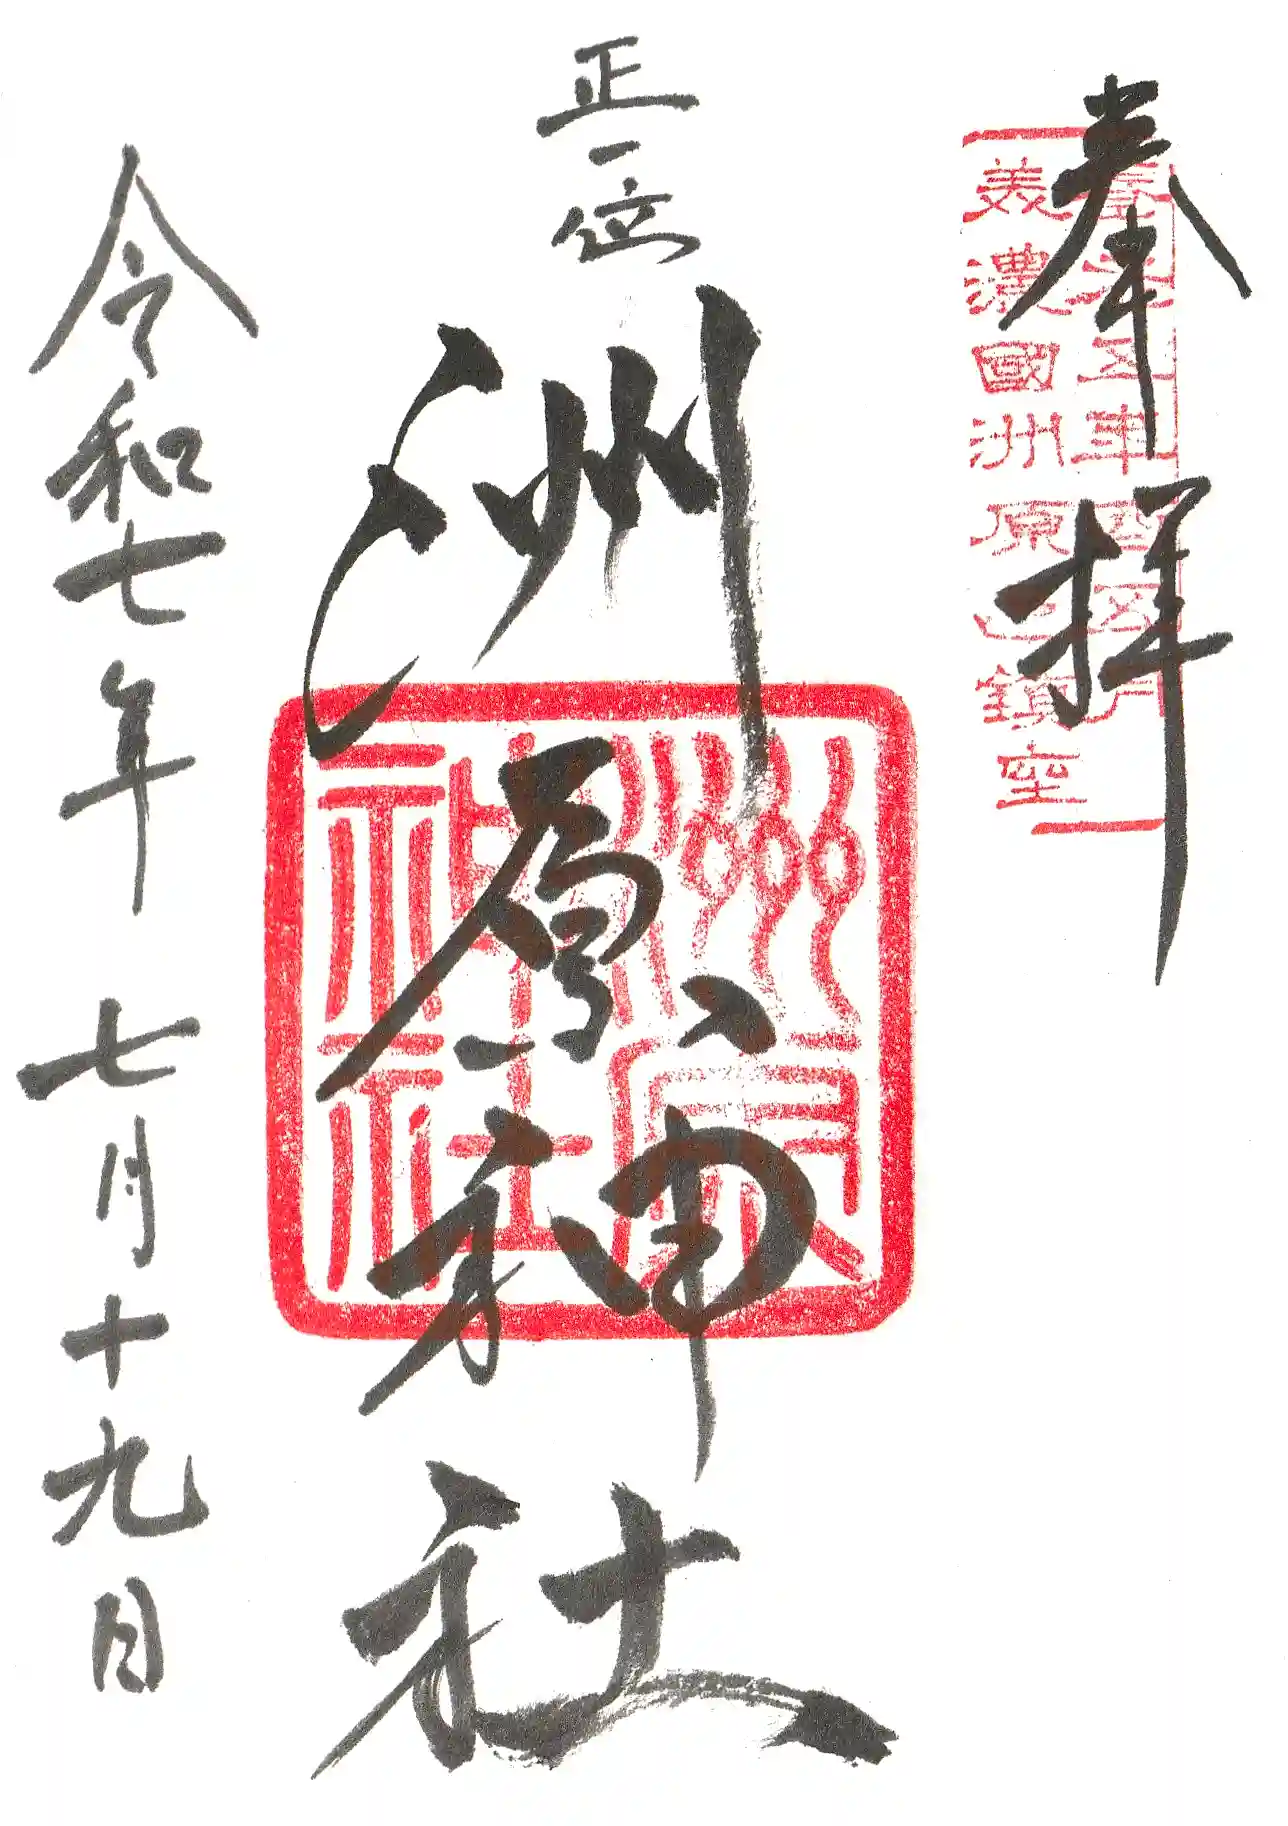 奉拝
養老五年酉五月
美濃國洲原鎮座
正一位
洲原神社
洲原
神社
令和七年 七月十九日